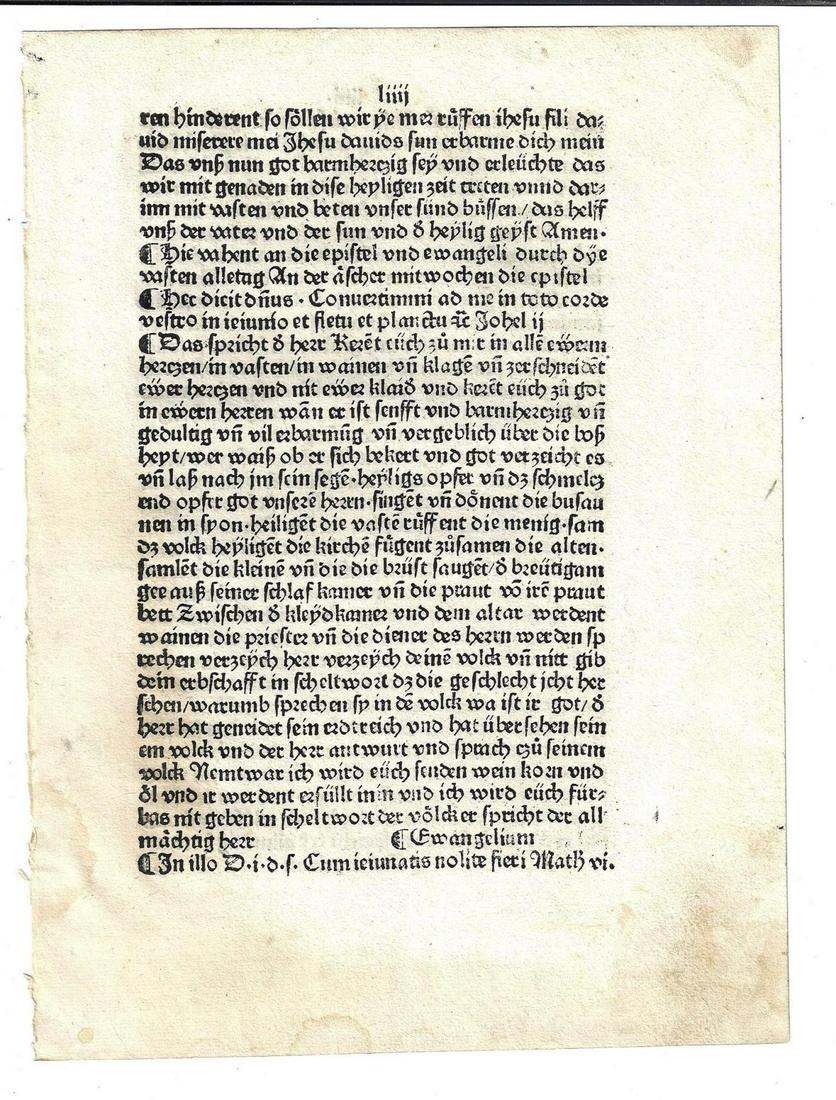 liiij
ren hinderent so söllen wir ÿe mer růffen ihesu fili da⸗
uid miserere mei Jhesu dauids sun erbarme dich mein
Das vnß nun got barmhertzig seÿ vnd erleüchte das
wir mit genaden in dise heyligen zeit treten vnnd dar⸗
inn mit vasten vnd beten vnser sünd büssen/das helff
vnß der vater vnd der sun vnd ð heylig geÿst Amen·
¶Hie vahent an die epistel vnd ewangeli durch dÿe
vasten alletag An der äscher mitwochen die epistel
¶Hec dicit dñus·Conuertimini ad me in toto corde
vestro in ieiunio et fletu et planctu ꝛc̄ Johel ij
¶Das spricht ð herr Kerēt eüch zů mir in allē ewerm
hertzen/in vasten/in wainen vñ klagē vñ zerschneidēt
ewer hertzen vnd nit ewer klaið vnd kerēt eüch zů got
in ewern herren wañ er ist senfft vnd barmhertzig vñ
gedultig vñ vil erbarmūg vñ vergeblich über die boß
heyt/wer waiß ob er sich bekert vnd got verzeicht es
vñ laß nach jm sein segē·heyligs opfer vñ dz schmeltz
end opfer got vnserē herrn·singēt vñ dönent die busau
nen in syon·heiligēt die vastē rüffent die menig·sam
dz volck heÿligēt die kirchē fůgent zůsamen die alten·
samlēt die kleinē vñ die die brüst saugēt/ð breütigam
gee auß seiner schlaf kamer vñ die praut võ irē praut
bett Zwischen ð kleÿdkamer vnd dem altar werdent
wainen die priester vñ die diener des herrn werden sp
rechen verzeÿch herr verzeÿch deinē volck vñ nitt gib
dein erbschafft in scheltwort dz die geschlecht icht her
schen/warumb sprechen sy in dē volck wa ist ir got/ð
herr hat geneidet sein erdtreich vnd hat übersehen sein
em volck vnd der herr antwurt vnd sprach czů seinem
volck Nemtwar ich wird eüch senden wein korn vnd
öl vnd ir werdent erfüllt in in vnd ich wird eüch für⸗
bas nit geben in scheltwort der völcker spricht der all
mächtig herr ¶Ewangelium
¶In illo D·i·d·s· Cum ieiunatis nolite fieri Math̄ vi.